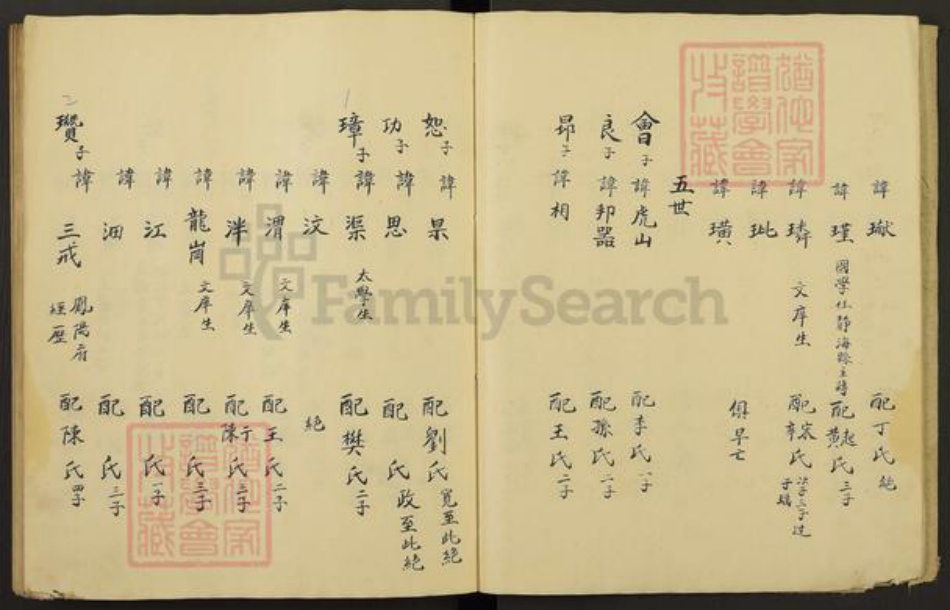 諱 璥 配丁氏 絶
諱 瑾 國學仕靜海縣主簿 配黄起氏 三子
諱 璘 文庠生 配宋辛氏
諱 玭
諱 璜 俱早亡
五世
會子 諱 虎山 配李氏 一子
良子 諱 邦器 配孫氏 一子
昂子 諱 相 配王氏 二子
恕子 諱 杲 配劉氏 寬至此絶
功子 諱 思 配 氏 政至此絶
璋子 諱 渠 太學生 配樊氏 二子
諱 汶 絶
諱 渭 文庠生 配王氏 二子
諱 泮 文庠生 配于陳氏 三子
諱 龍崗 文庠生 配 氏 三子
諱 江 配 氏 一子
諱 泗 配 氏 三子
瓚子 諱 三戒 鳳陽府經歷 配陳氏 四子
猶他家譜學會收藏
猶他家譜學會收藏
FamilySearch